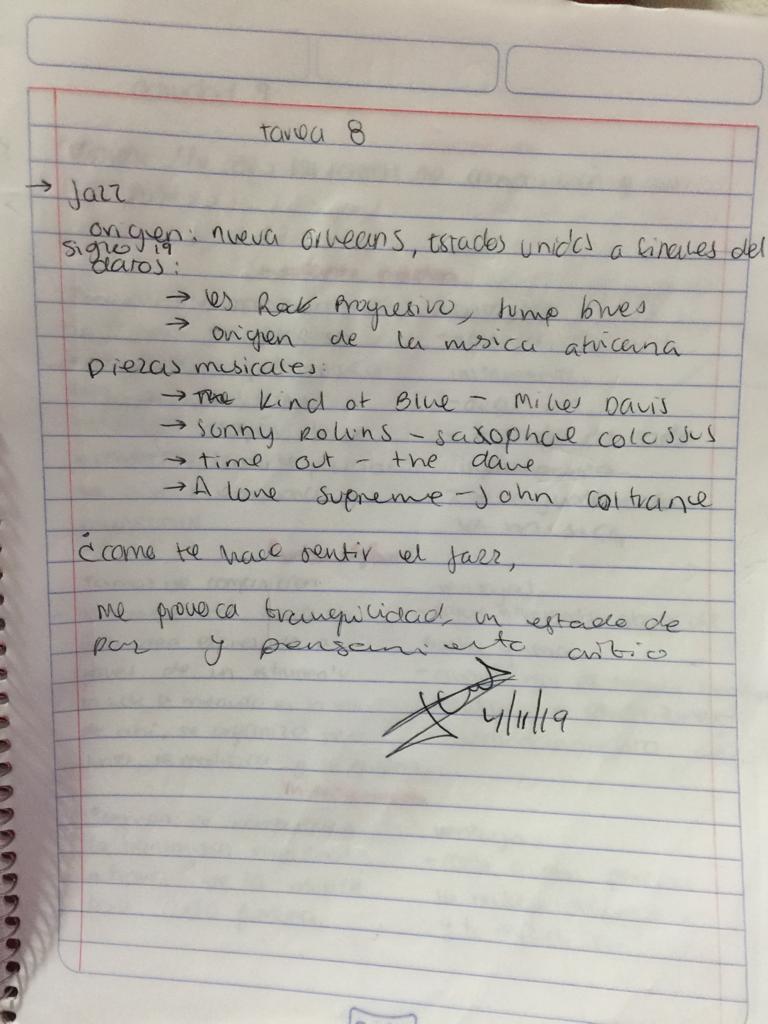 tarea 8
→ Jazz
origien: nueva Orleans, Estados unidos a finales del
siglo 19
datos:
→ es Rock Progresivo, Jump blues
→ origien de la msica africana
Piezas musicales:
→ Kind of Blue - Miles Davis
→ Sonny Rolins - Saxophoe colossus
→ time out - the dave
→ A love supreme - John coltrance
¿como te hace sentir el jazz,
me provoca tranquilidad, un estado de
paz y pensamiento critio
4/11/19